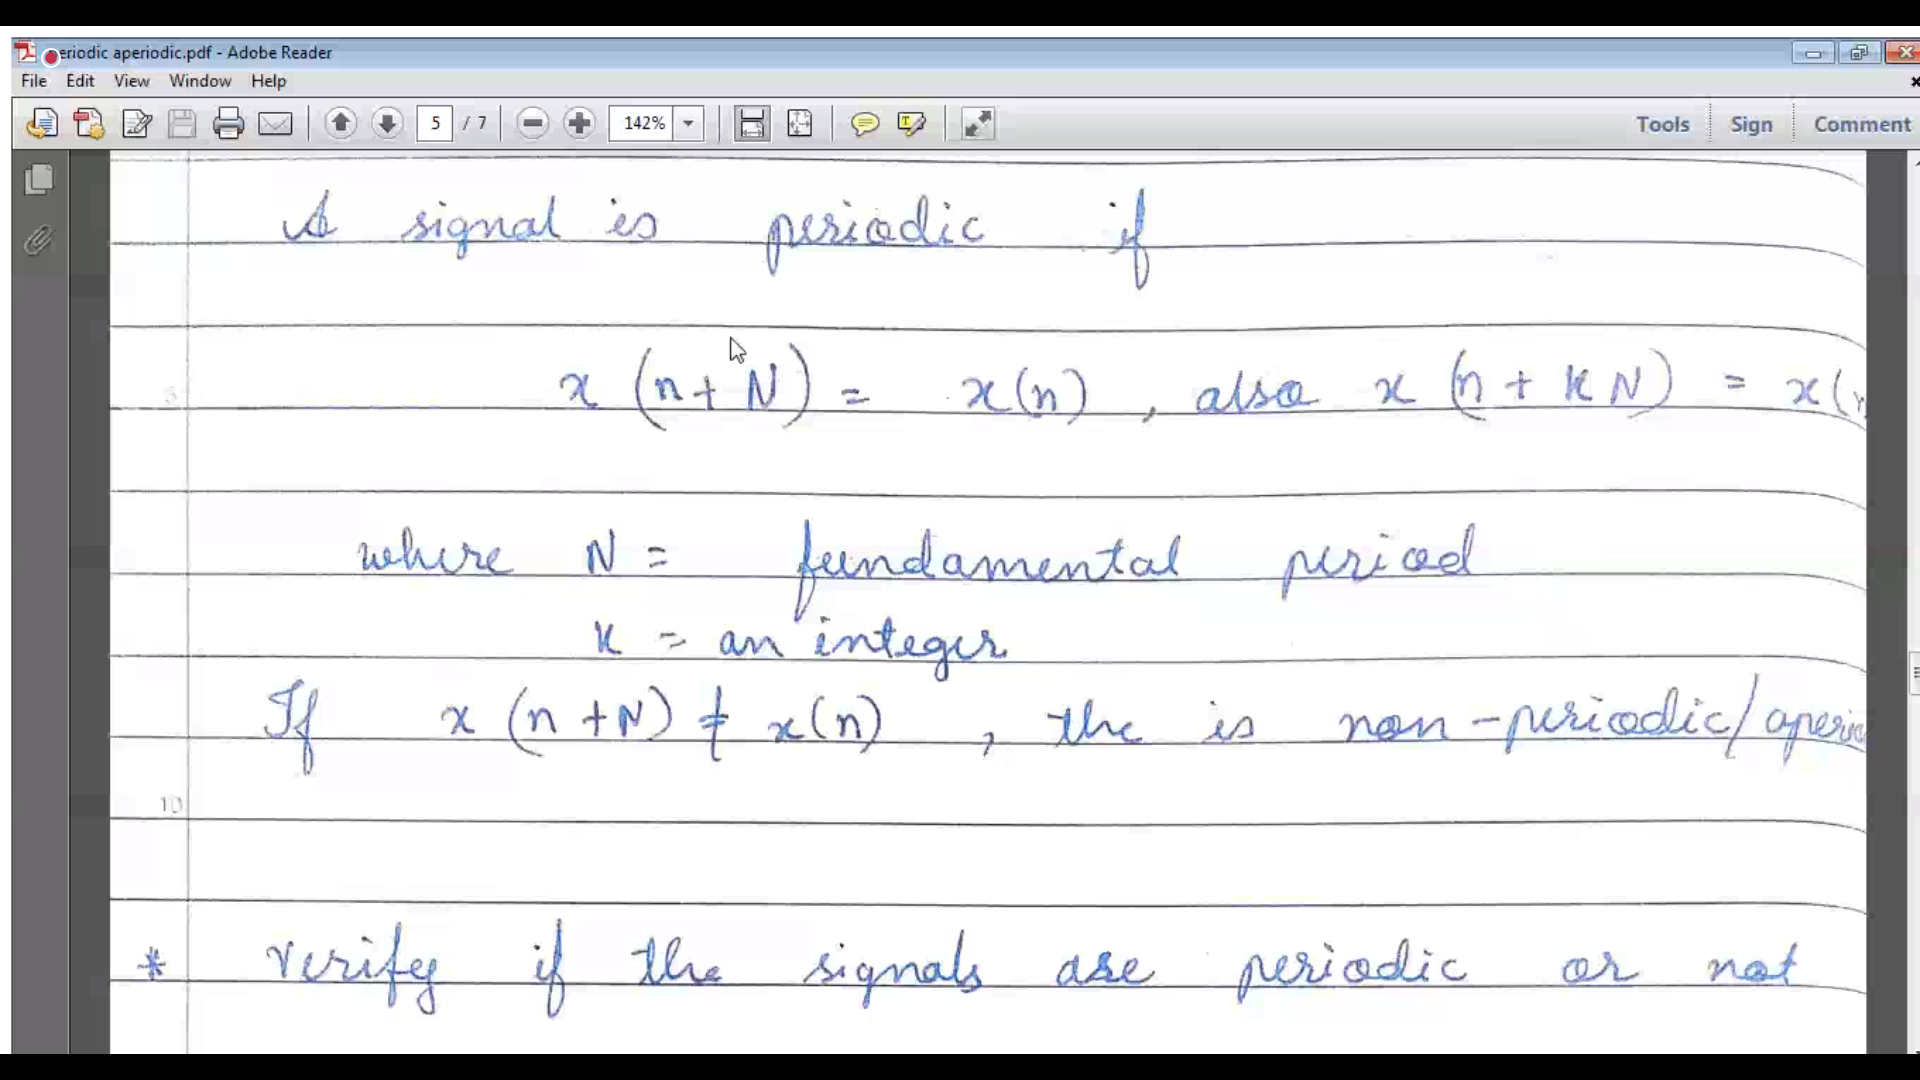 periodic aperiodic.pdf - Adobe Reader
File Edit View Window Help
5 / 7 142% Tools Sign Comment
A signal is periodic if
x (n + N) = x(n) , also x (n + KN) = x(n
where N = fundamental period
K = an integer
If x (n + N) ≠ x(n) , the is non-periodic/aperio
10
* Verify if the signals are periodic or not